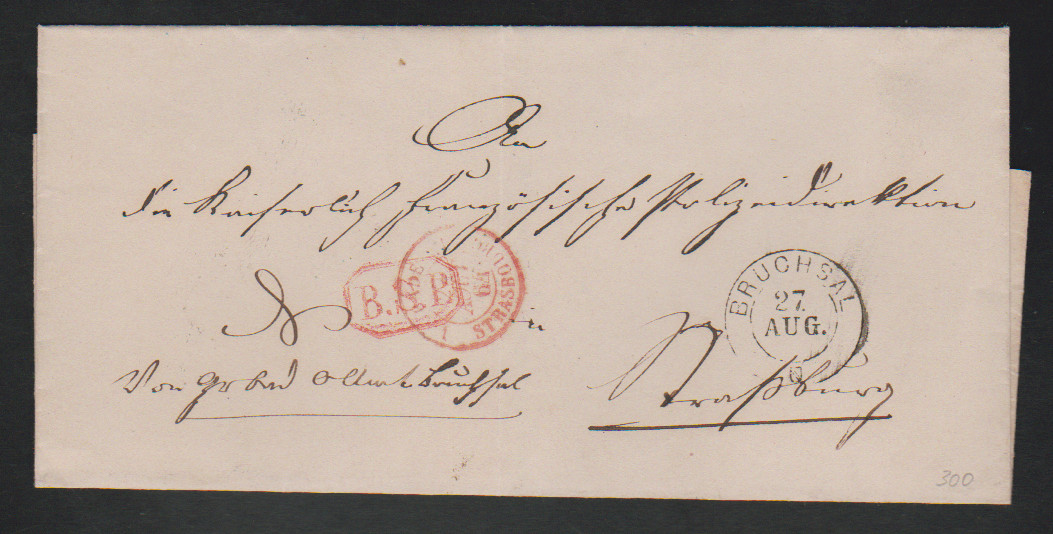 An
die Kaiserlich Französische Polizeidirektion
in
Straßburg
Von Gr bad OAmt Bruchsal
BRUCHSAL
27
AUG.
B. B
STRASBOURG
300